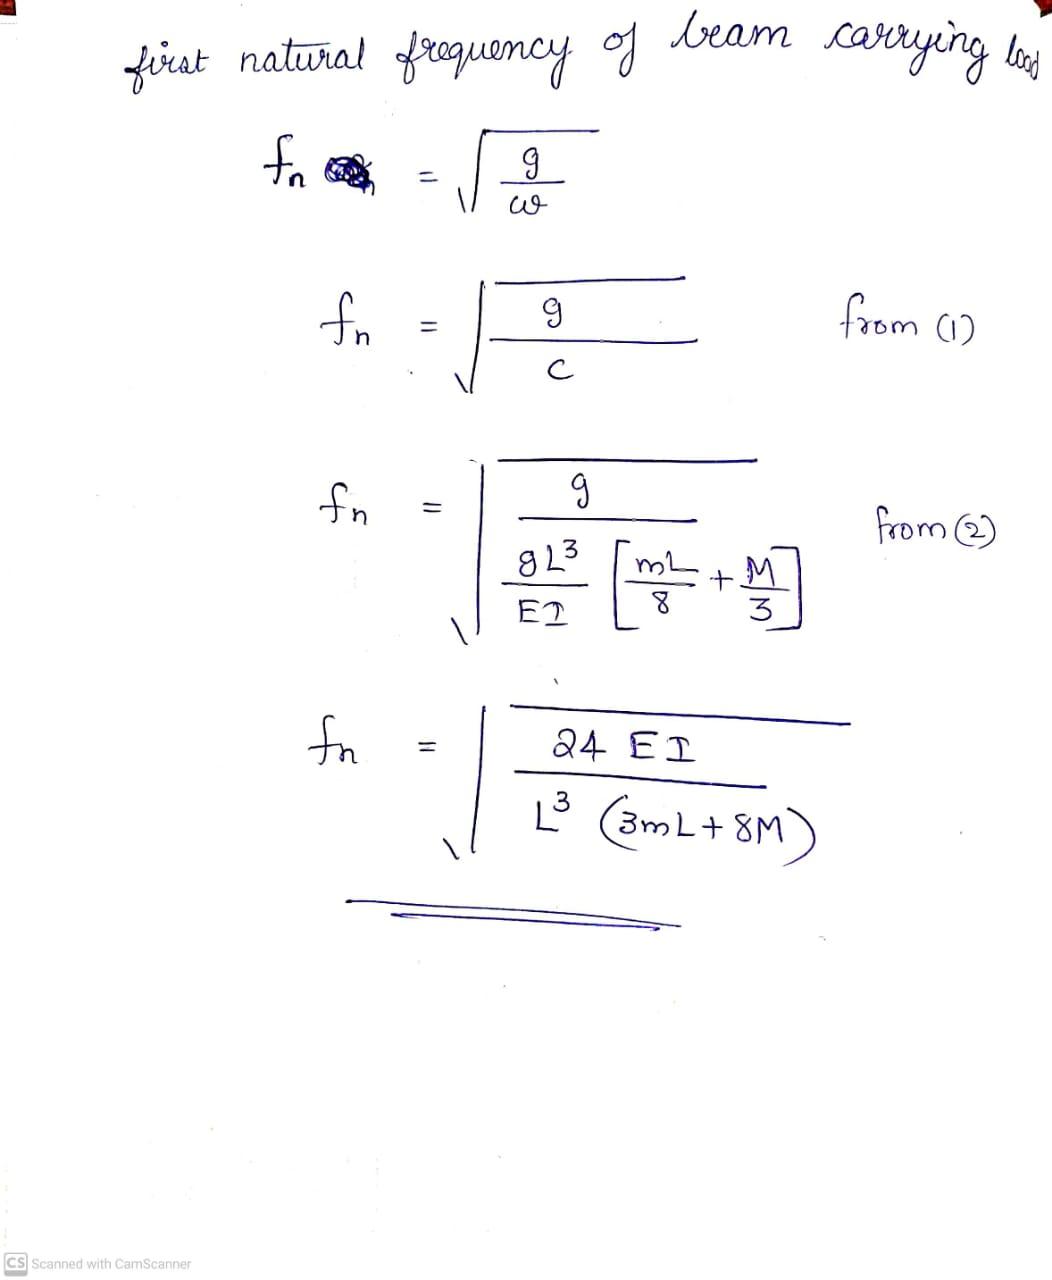 first natural frequency of beam carrying load
fn = √(g/w)
fn = √(g/c) from (1)
fn = √(g / (gL³/EI [mL/8 + M/3])) from (2)
fn = √(24 EI / (L³ (3mL + 8M)))
CS Scanned with CamScanner